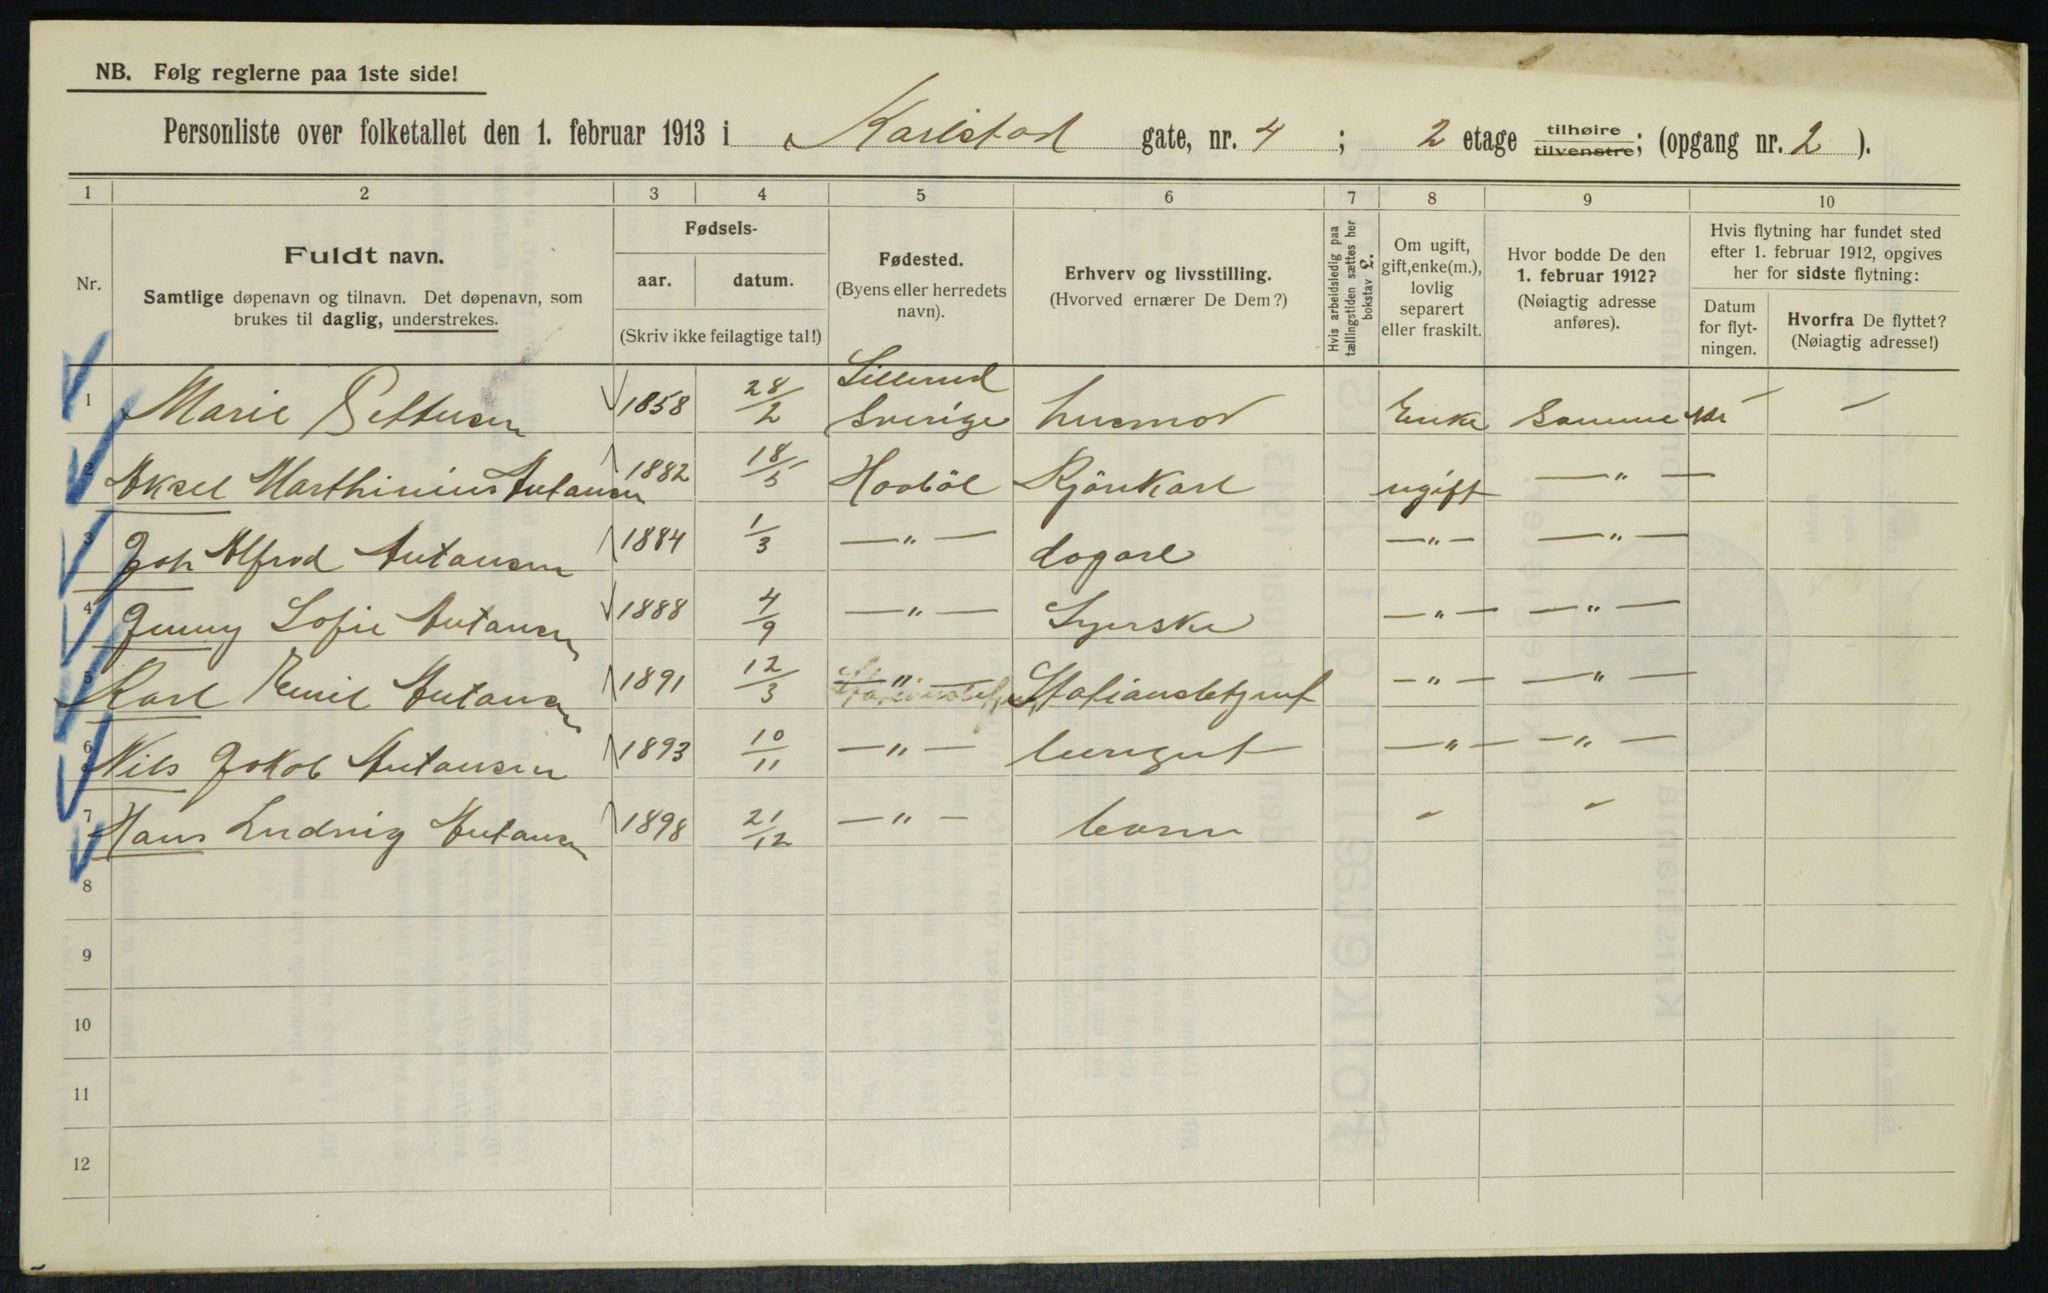 NB. Følg reglerne paa 1ste side!
Personliste over folketallet den 1. februar 1913 i Karlstad gate, nr. 4 ; 2 etage tilhøire tilvenstre; (opgang nr. 2 ).
1 2 3 4 5 6 7 8 9 10
Nr.
Fuldt navn.
Samtlige døpenavn og tilnavn. Det døpenavn, som
brukes til daglig, understrekes.
Fødsels-
aar. datum.
(Skriv ikke feilagtige tal!)
Fødested.
(Byens eller herredets
navn).
Erhverv og livsstilling.
(Hvorved ernærer De Dem?)
Hvis arbeidsledig paa
tællingstiden sættes her
bokstav £.
Om ugift,
gift, enke(m.),
lovlig
separert
eller fraskilt.
Hvor bodde De den
1. februar 1912?
(Nøiagtig adresse
anføres).
Hvis flytning har fundet sted
efter 1. februar 1912, opgives
her for sidste flytning:
Datum
for flyt-
ningen.
Hvorfra De flyttet?
(Nøiagtig adresse!)
1 Marie Pettersen 1858 28/2 Lillerud Sverige husmor Enke Samme – –
2 Aksel Marthinius Antansen 1882 18/5 Hobøl Kjørekarl ugift — " —
3 Joh Alfred Antansen 1884 1/3 — " — do – " – — " —
4 Jenny Sofie Antansen 1888 4/9 — " — Syerske – " – — " —
5 Karl Emil Antansen 1891 12/3 — " — Stationsbetjent – " – — " —
6 Nils Jakob Antansen 1893 10/11 — " — — " — — " —
7 Hans Ludvig Antansen 1898 21/12 — " — barn – –
8
9
10
11
12